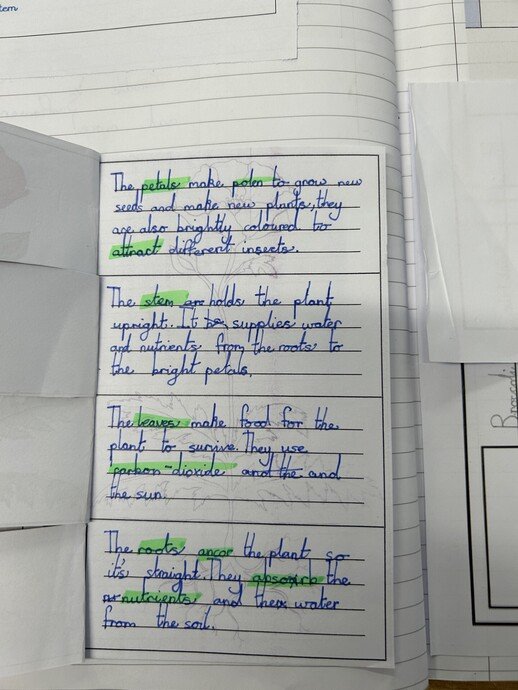 tem
The petals make polen to grow new
seeds and make new plants, they
are also brightly coloured to
attract different insects.
The stem are holds the plant
upright. It be supplies water
and nutrients from the roots to
the bright petals.
The leaves make food for the
plant to survive. They use
carbon-dioxide and the and
the sun.
The roots ancor the plant so
it's straight. They absorb the
nutrients and the water
from the soil.